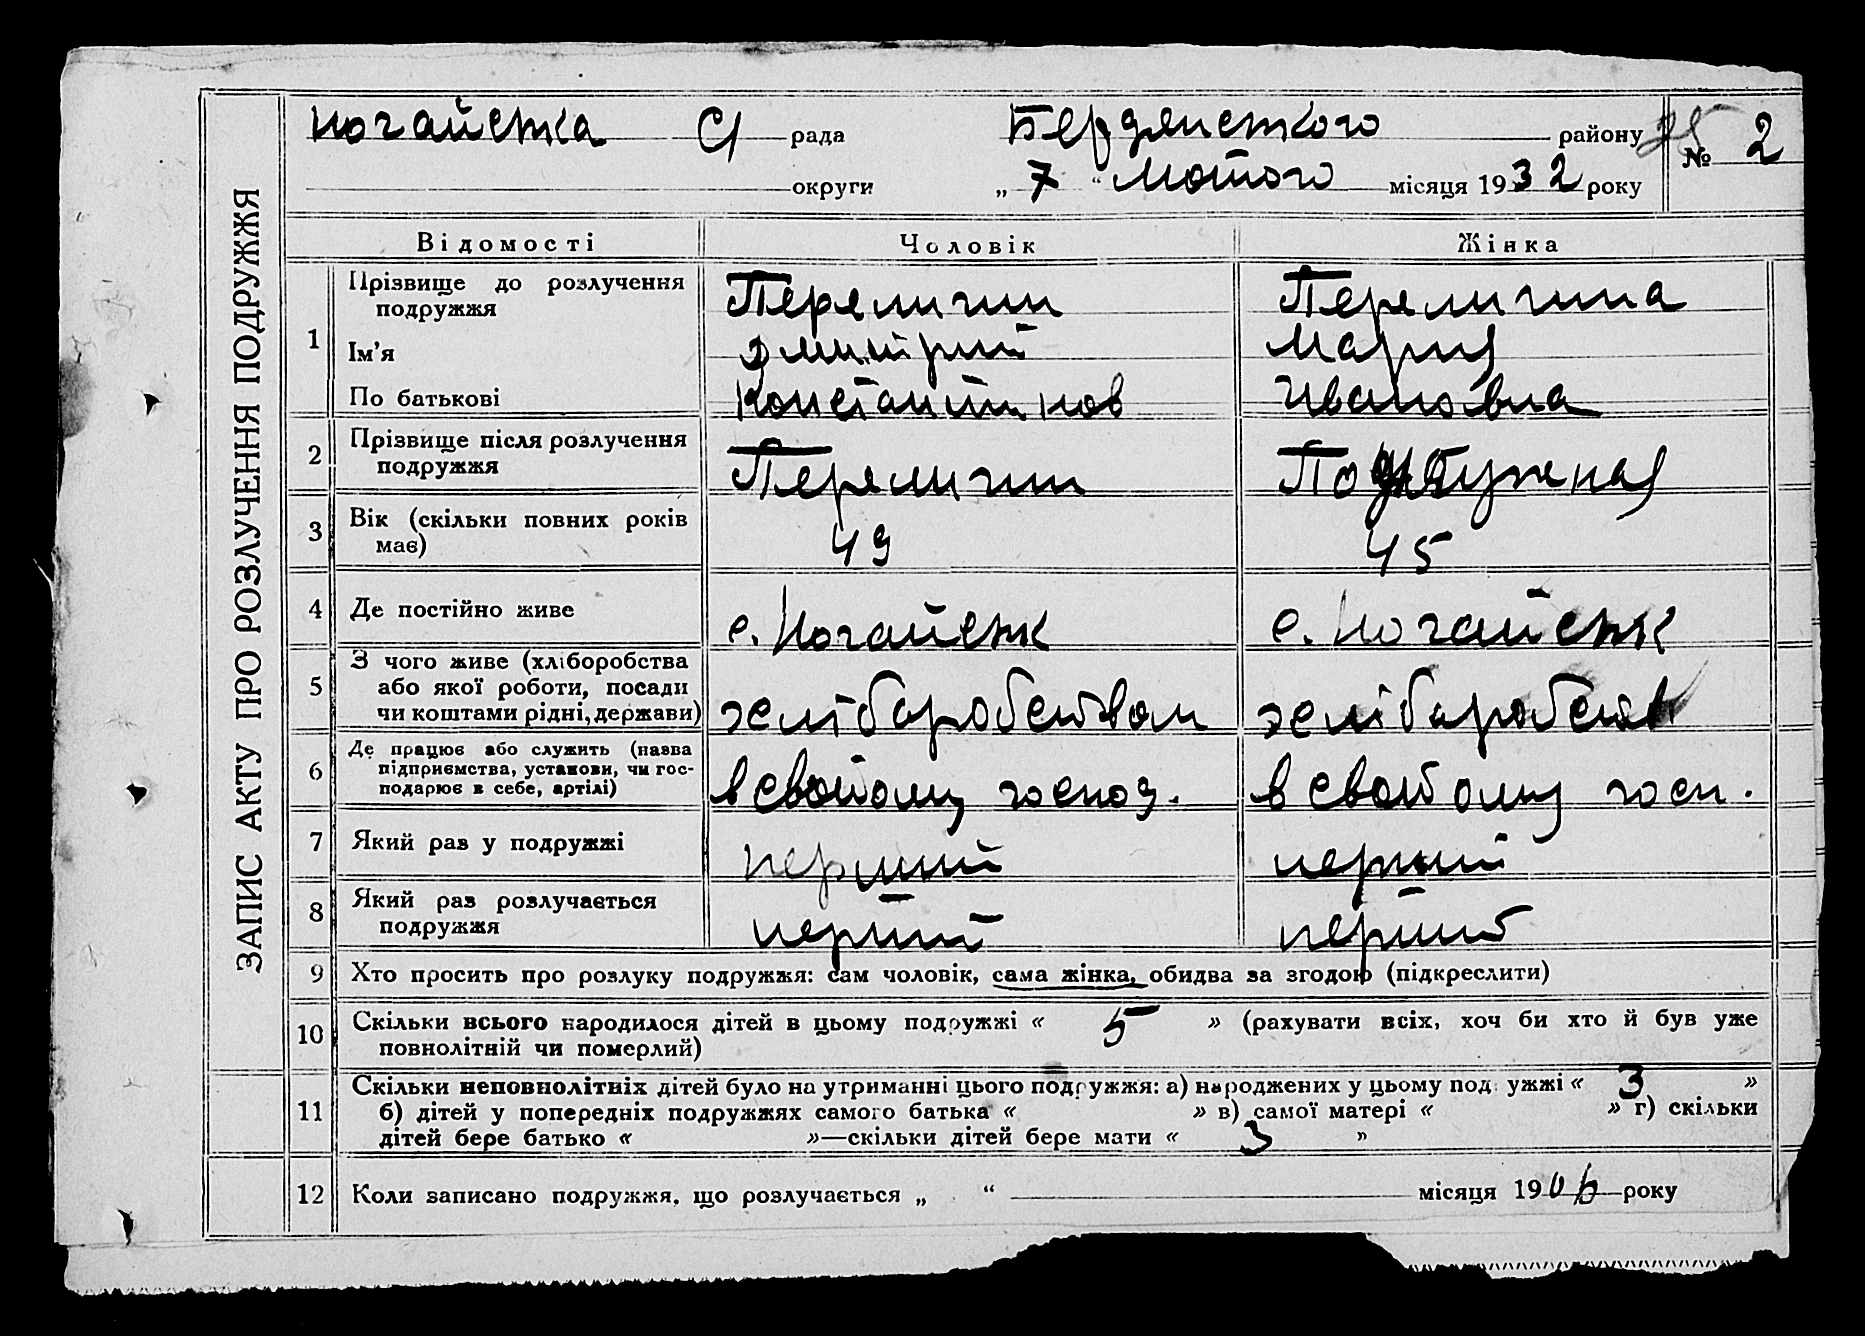 ЗАПИС АКТУ ПРО РОЗЛУЧЕННЯ ПОДРУЖЖЯ
Ногайська С/ рада Бердянського району
№ 2
округи „ 7 “ Лютого місяця 1932 року
Відомості Чоловік Жінка
1 Прізвище до розлучення подружжя Перелигин Перелигина
Ім'я Дмитрий Мария
По батькові Константинов Ивановна
2 Прізвище після розлучення подружжя Перелигин
3 Вік (скільки повних років має) 49 45
4 Де постійно живе с. Ногайськ с. Ногайськ
5 З чого живе (хліборобства або якої роботи, посади чи коштами рідні, держави) хліборобством
6 Де працює або служить (назва підприємства, установи, чи господарює в себе, артілі) в свойому господ. в свойому госп.
7 Який раз у подружжі перший перший
8 Який раз розлучається подружжя перший перший
9 Хто просить про розлуку подружжя: сам чоловік, сама жінка, обидва за згодою (підкреслити)
10 Скільки всього народилося дітей в цьому подружжі « 5 » (рахувати всіх, хоч би хто й був уже
повнолітній чи померлий)
11 Скільки неповнолітніх дітей було на утриманні цього подружжя: а) народжених у цьому подружжі « 3 »
б) дітей у попередніх подружжях самого батька « » в) самої матері « » г) скільки
дітей бере батько « »—скільки дітей бере мати « 3 »
12 Коли записано подружжя, що розлучається „ “ місяця 1906 року